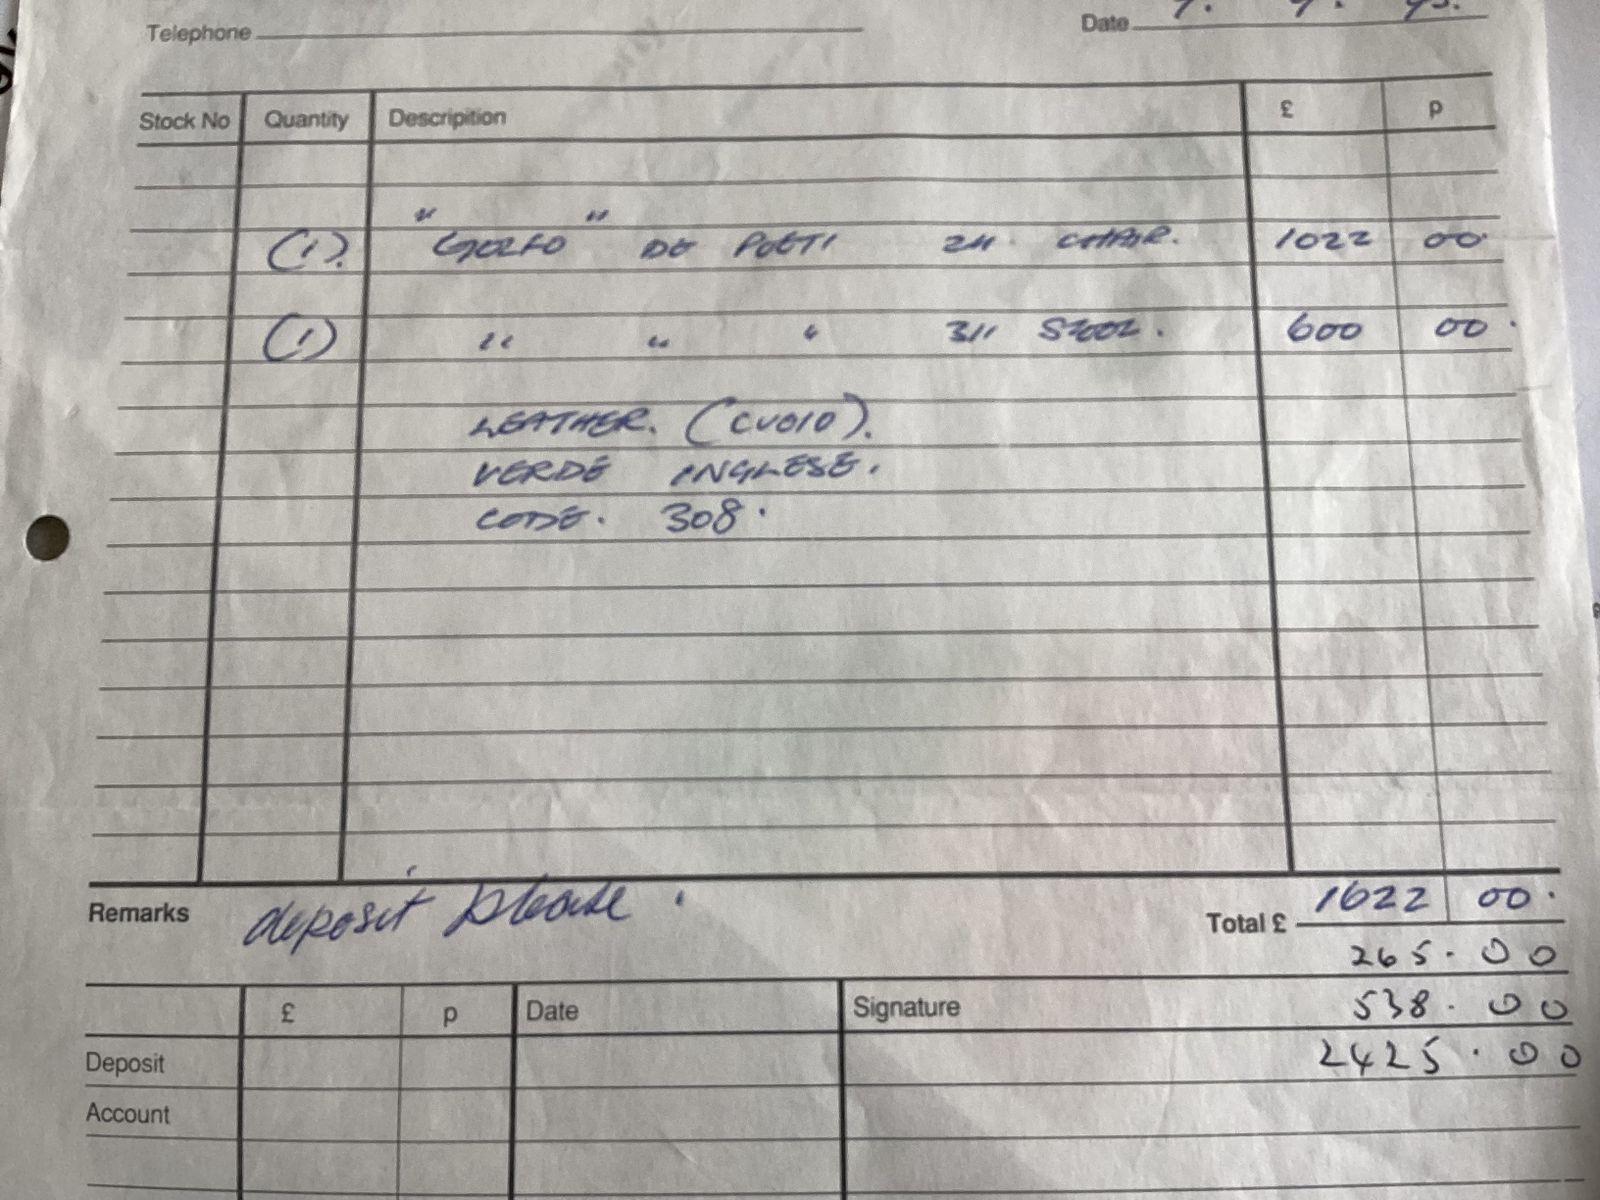 Telephone Date 9. 9. 95.
Stock No Quantity Descripition £ p
(1). "GOLFO" DE POETI 211 CHAIR. 1022 00
(1) " " " 311 STOOL. 600 00.
LEATHER. (CUOIO).
VERDE INGLESE.
CODE. 308.
Remarks deposit please. Total £ 1622 00.
265.00
538.00
2425.00
£ p Date Signature
Deposit
Account